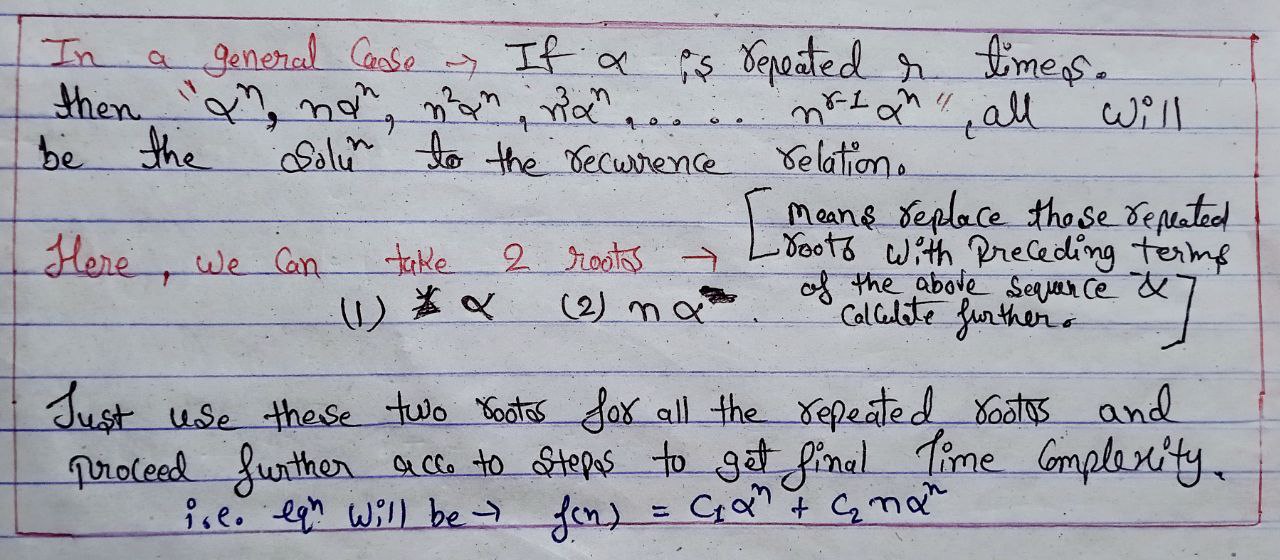 In a general Case → If α is repeated r times.
then "αⁿ, nαⁿ, n²αⁿ, n³αⁿ, ..... nʳ⁻¹αⁿ", all will
be the soluⁿ to the recurrence relation.
[means replace those repeated
Here, we can take 2 roots → roots with Preceding terms
of the above sequence &
(1) α (2) nα. calculate further.]
Just use these two roots for all the repeated roots and
proceed further acc. to steps to get final Time Complexity.
i.e. eqⁿ will be → f(n) = C₁αⁿ + C₂nαⁿ